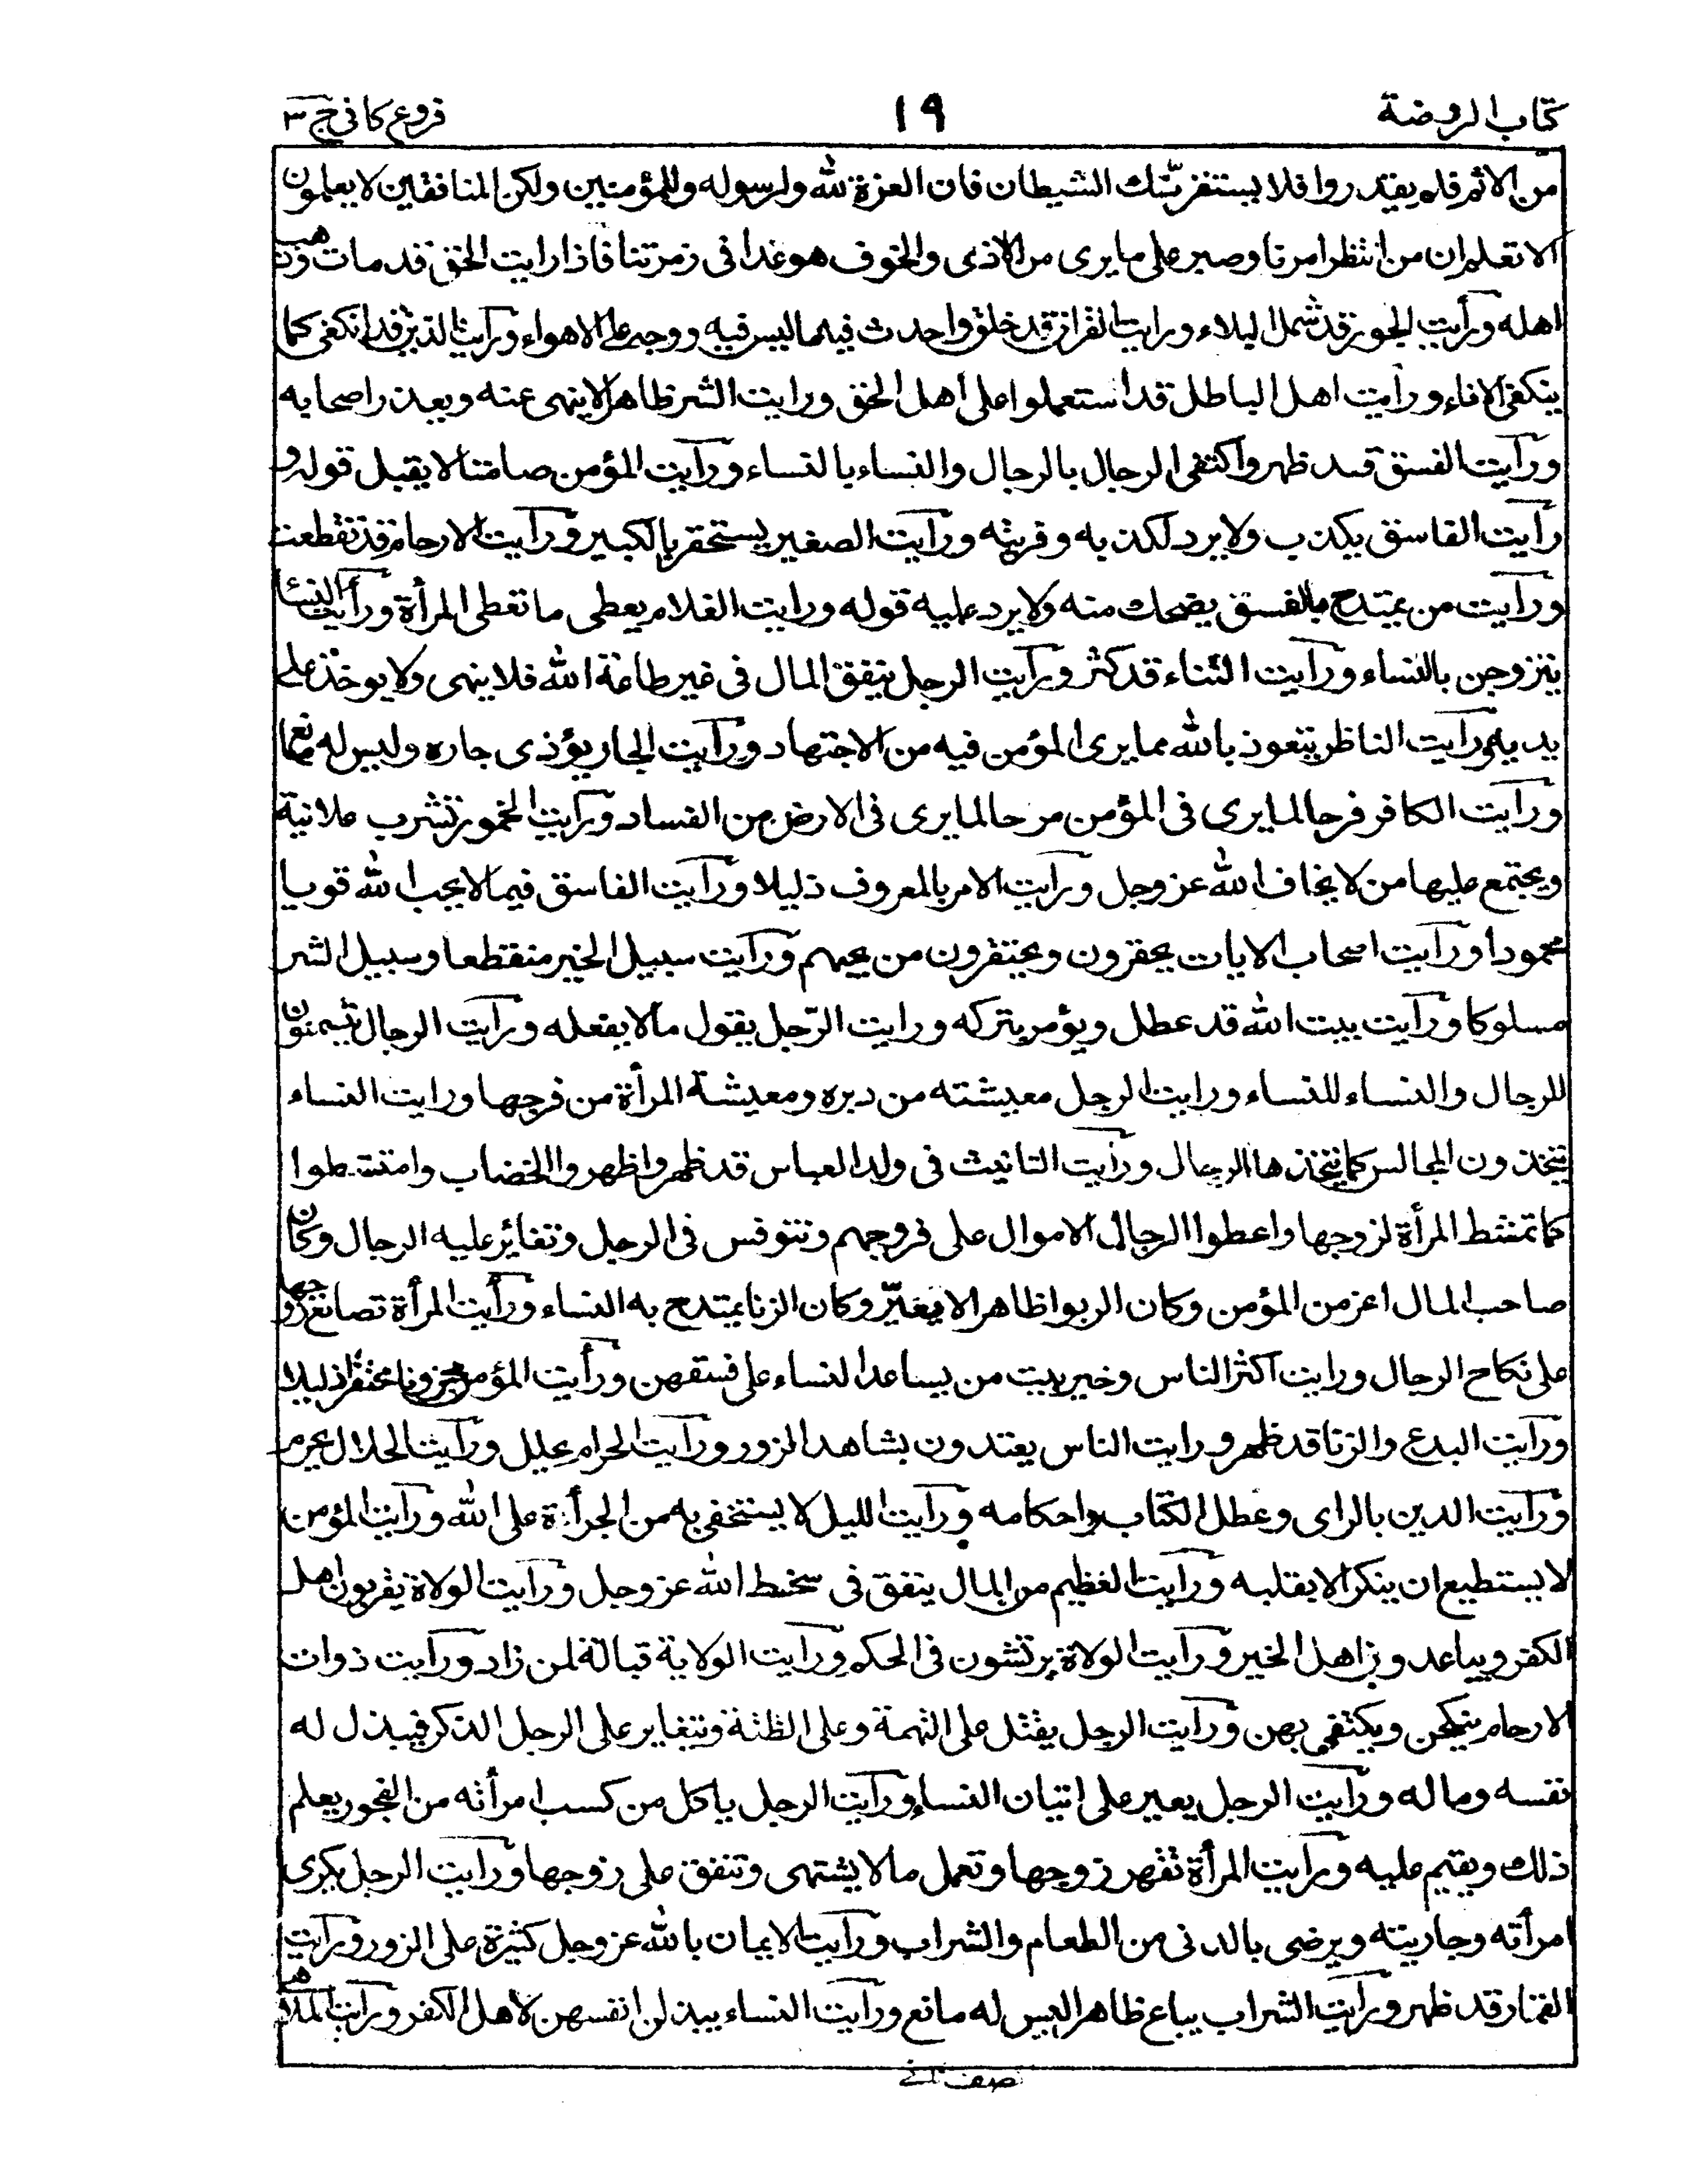 كتاب الروضة
١٩
فروع كافي ج ٣
من الاثم فلم يقدروا فلا يستفزنّك الشيطان فان العزة لله ولرسوله وللمؤمنين ولكن المنافقين لا يعلمون
الا تعلم ان من انتظر امرنا وصبر على ما يرى من الاذى والخوف هو غدا فى زمرتنا فاذا رايت الحق قد مات وذهب
اهله ورأيت الجور قد شمل البلاء ورايت القران قد خلق واحدث فيه ما ليس فيه ووجه على الاهواء ورأيت الدين قد انكفى كما
ينكفى الاناء ورأيت اهل الباطل قد استعملوا على اهل الحق ورايت الشر ظاهرا لا ينهى عنه ويعذر اصحابه
ورأيت الفسق قد ظهر واكتفى الرجال بالرجال والنساء بالنساء ورأيت المؤمن صامتا لا يقبل قوله و
رأيت الفاسق يكذب ولا يرد لكذبه وفريته ورأيت الصغير يستحقر بالكبير ورأيت الارحام قد تقطعت
ورأيت من يمتدح بالفسق يضحك منه ولا يرد عليه قوله ورايت الغلام يعطى ما تعطى المرأة ورأيت النساء
يتزوجن بالنساء ورأيت الثناء قد كثر ورأيت الرجل ينفق المال فى غير طاعة الله فلا ينهى ولا يوخذ على
يديه ورأيت الناظر يتعوذ بالله مما يرى المؤمن فيه من الاجتهاد ورأيت الجار يؤذى جاره وليس له مانع
ورأيت الكافر فرحا لما يرى فى المؤمن مرحا لما يرى فى الارض من الفساد ورأيت الخمور تشرب علانية
ويجتمع عليها من لا يخاف الله عز وجل ورايت الامر بالمعروف ذليلا ورأيت الفاسق فيما لا يحب الله قويا
محمودا ورأيت اصحاب الايات يحقرون ويحتقرون من يحبهم ورأيت سبيل الخير منقطعا وسبيل الشر
مسلوكا ورأيت بيت الله قد عطل ويؤمر بتركه ورايت الرّجل يقول ما لا يفعله ورأيت الرجال يتسمنون
للرجال والنساء للنساء ورايت الرجل معيشته من دبره ومعيشة المرأة من فرجها ورايت النساء
يتخذون المجالس كما يتخذها الرجال ورأيت التانيث فى ولد العباس قد ظهر واظهروا الخضاب وامتشطوا
كما تمتشط المرأة لزوجها واعطوا الرجال الاموال على فروجهم وتنوفس فى الرجل وتغاير عليه الرجال وكان
صاحب المال اعز من المؤمن وكان الربوا ظاهرا لا يغيّر وكان الزنا يمتدح به النساء ورأيت المرأة تصانع زوجها
على نكاح الرجال ورايت اكثر الناس وخير بيت من يساعد النساء على فسقهن ورأيت المؤمن محزونا محتقرا ذليلا
ورأيت البدع والزنا قد ظهر ورايت الناس يعتدون بشاهد الزور ورأيت الحرام يحلل ورأيت الحلال يحرم
ورأيت الدين بالراى وعطل الكتاب واحكامه ورأيت الليل لا يستخفى به من الجرأة على الله ورأيت المؤمن
لا يستطيع ان ينكر الا بقلبه ورأيت العظيم من المال ينفق فى سخط الله عز وجل ورأيت الولاة يقربون اهل
الكفر ويباعدون اهل الخير ورأيت الولاة يرتشون فى الحكم ورأيت الولاية قبالة لمن زاد ورأيت ذوات
الارحام ينكحن ويكتفى بهن ورأيت الرجل يقتل على التهمة وعلى الظنة ويتغاير على الرجل الذكر فيبذل له
نفسه وماله ورأيت الرجل يعير على اتيان النساء ورأيت الرجل ياكل من كسب امرأته من الفجور يعلم
ذلك ويقيم عليه ورأيت المرأة تقهر زوجها وتعمل ما لا يشتهى وتنفق على زوجها ورأيت الرجل يكرى
امرأته وجاريته ويرضى بالدنى من الطعام والشراب ورأيت الايمان بالله عز وجل كثيرة على الزور ورأيت
القمار قد ظهر ورأيت الشراب يباع ظاهرا ليس له مانع ورأيت النساء يبذلن انفسهن لاهل الكفر ورأيت الملاهى